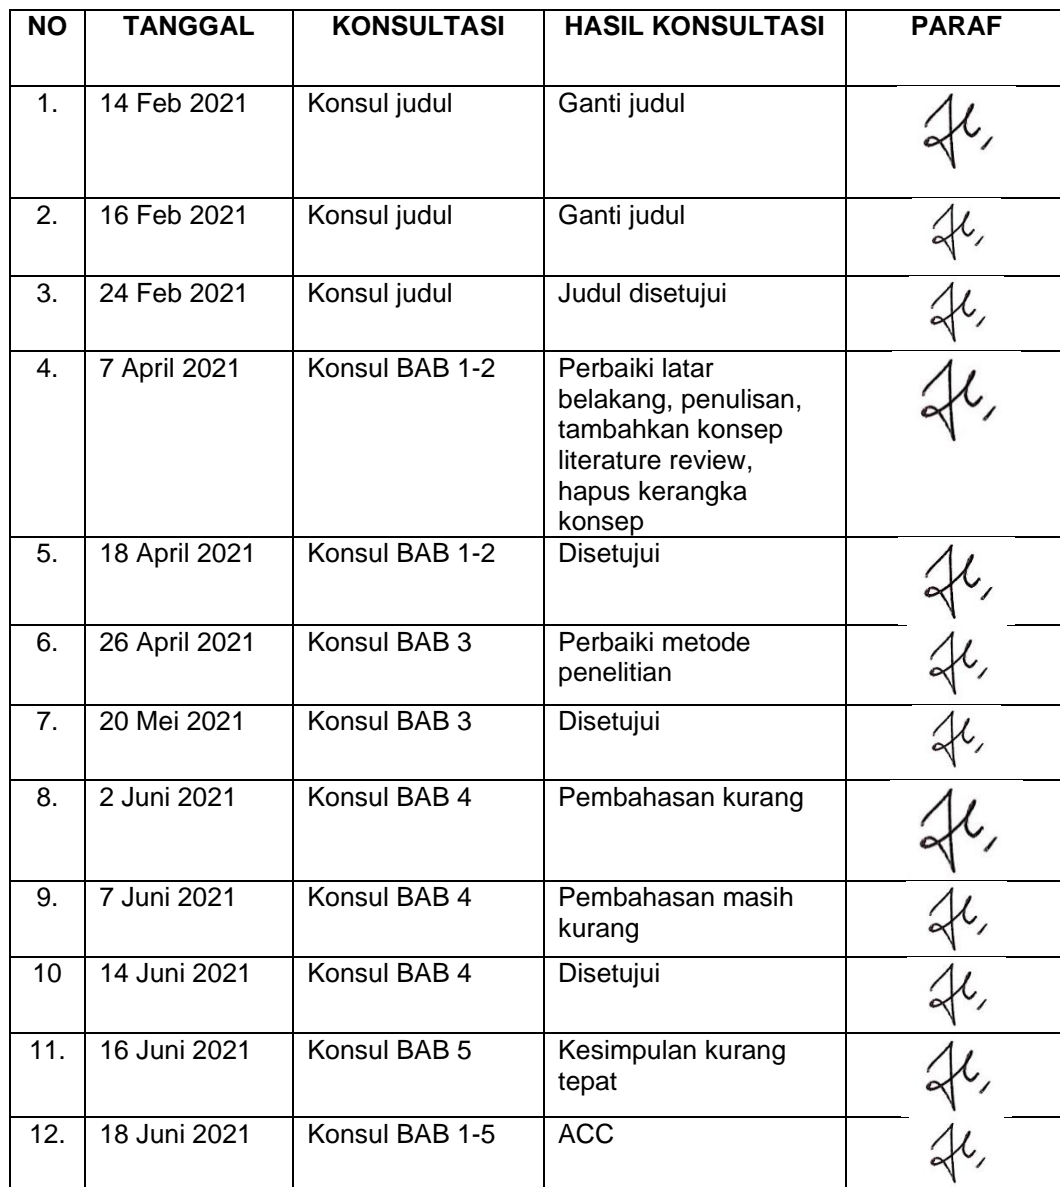 NO TANGGAL KONSULTASI HASIL KONSULTASI PARAF
1. 14 Feb 2021 Konsul judul Ganti judul
2. 16 Feb 2021 Konsul judul Ganti judul
3. 24 Feb 2021 Konsul judul Judul disetujui
4. 7 April 2021 Konsul BAB 1-2 Perbaiki latar
belakang, penulisan,
tambahkan konsep
literature review,
hapus kerangka
konsep
5. 18 April 2021 Konsul BAB 1-2 Disetujui
6. 26 April 2021 Konsul BAB 3 Perbaiki metode
penelitian
7. 20 Mei 2021 Konsul BAB 3 Disetujui
8. 2 Juni 2021 Konsul BAB 4 Pembahasan kurang
9. 7 Juni 2021 Konsul BAB 4 Pembahasan masih
kurang
10 14 Juni 2021 Konsul BAB 4 Disetujui
11. 16 Juni 2021 Konsul BAB 5 Kesimpulan kurang
tepat
12. 18 Juni 2021 Konsul BAB 1-5 ACC